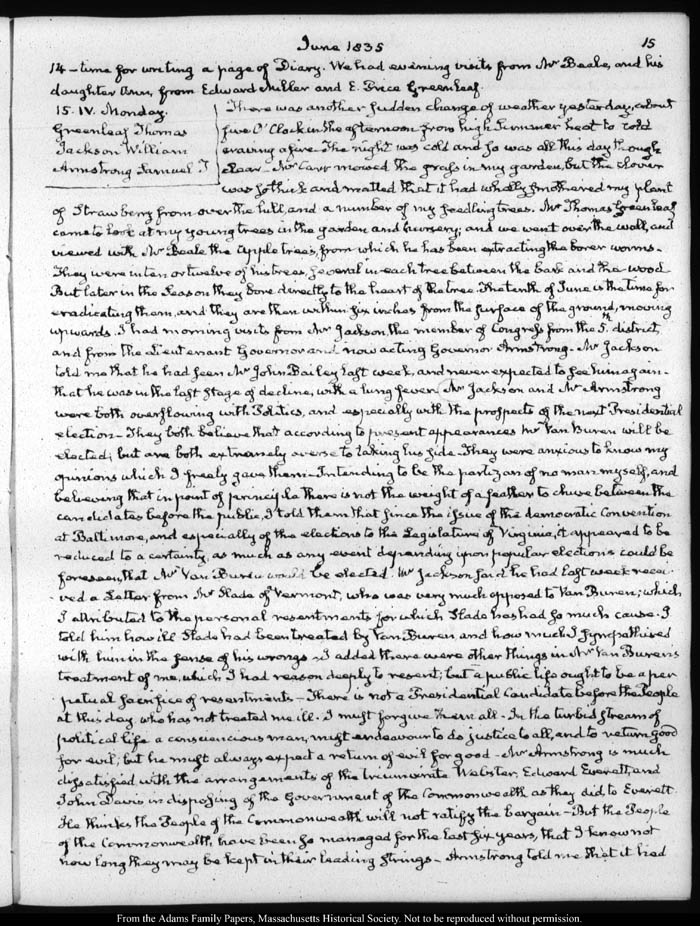 June 1835
15
14 – time for writing a page of Diary. We had evening visits from Mr Beale, and his
daughter Ann, from Edward Miller and E. Price Greenleaf.
15. IV. Monday.
Greenleaf Thomas
Jackson William
Armstrong Samuel T
There was another sudden change of weather yesterday, about
five O'Clock in the afternoon from high Summer heat to cold
craving a fire. The night was cold and so was all this day though
clear – Mr Carr mowed the grass in my garden, but the clover
was so thick and matted that it had wholly smothered my plant
of Strawberry from over the hill, and a number of my seedling trees. Mr Thomas Greenleaf
came to look at my young trees in the garden and nursery; and we went over the wall, and
viewed with Mr Beale the apple trees, from which he has been extracting the borer worms –
They were in ten or twelve of his trees, several in each tree between the bark and the wood
But later in the Season they bore directly to the heart of the tree. The tenth of June is the time for
eradicating them, and they are then within six inches from the surface of the ground, moving
upwards. I had morning visits from Mr Jackson, the member of Congress from the district,
and from the Lieutenant Governor and now acting Governor Armstrong. Mr Jackson
told me that he had seen Mr John Bailey last week, and never expected to see him again –
that he was in the last stage of decline, with a lung fever. Mr Jackson and Mr Armstrong
were both overflowing with Politics, and especially with the prospects of the next Presidential
election – They both believe that according to present appearances Mr Van Buren will be
elected; but are both extremely averse to taking his side. They were anxious to know my
opinions which I freely gave them – Intending to be the partizan of no man myself, and
believing that in point of principle there is not the weight of a feather to chuse between the
candidates before the public, I told them that since the issue of the democratic Convention
at Baltimore, and especially of the elections to the Legislature of Virginia, it appeared to be
reduced to a certainty, as much as any event depending upon popular elections could be
foreseen, that Mr Van Buren would be elected. Mr Jackson said he had last week recei-
ved a Letter from Mr Slade of Vermont, who was very much opposed to Van Buren; which
I attributed to the personal resentments for which Slade has had so much cause. I
told him how ill Slade had been treated by Van Buren, and how much I sympathised
with him in the sense of his wrongs – I added there were other things in Mr Van Buren's
treatment of me, which I had reason deeply to resent; but a public life ought to be a per
petual sacrifice of resentments – There is not a Presidential Candidate before the People
at this day, who has not treated me ill. I must forgive them all – In the turbid stream of
political life a consciencious man, must endeavour to do justice to all, and to return good
for evil; but he must always expect a return of evil for good – Mr Armstrong is much
dissatisfied with the arrangements of the triumvirate Webster, Edward Everett, and
John Davis in disposing of the Government of the Commonwealth as they did to Everett.
He thinks the People of the Commonwealth will not ratify the bargain – But the People
of the Commonwealth, have been so managed for the last six years, that I know not
how long they may be kept in their leading strings – Armstrong told me that it had
From the Adams Family Papers, Massachusetts Historical Society. Not to be reproduced without permission.